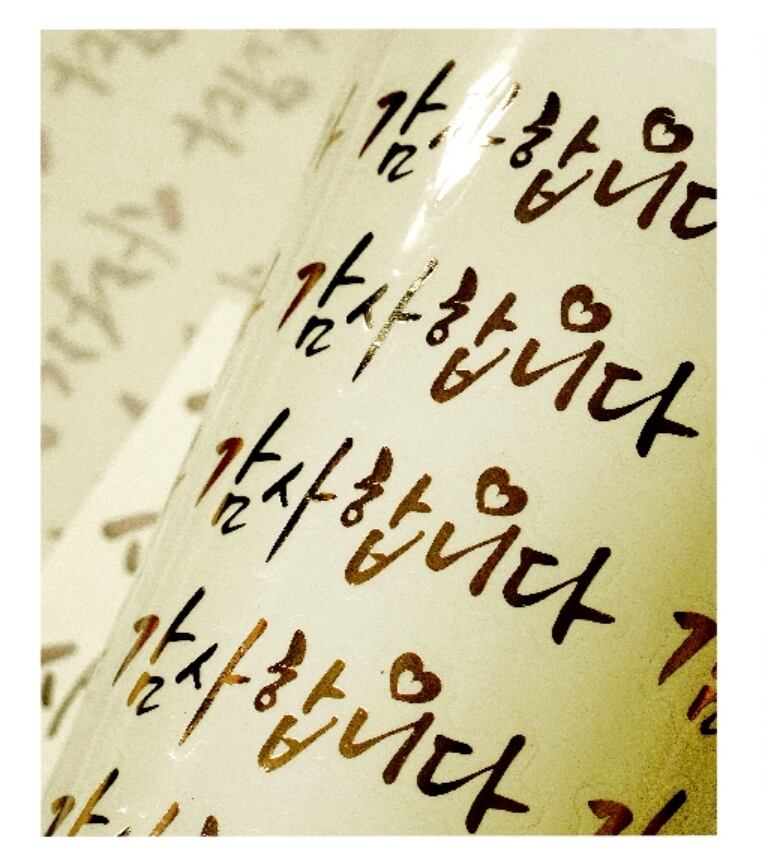 감사합니다
감사합니다
감사합니다
감사합니다